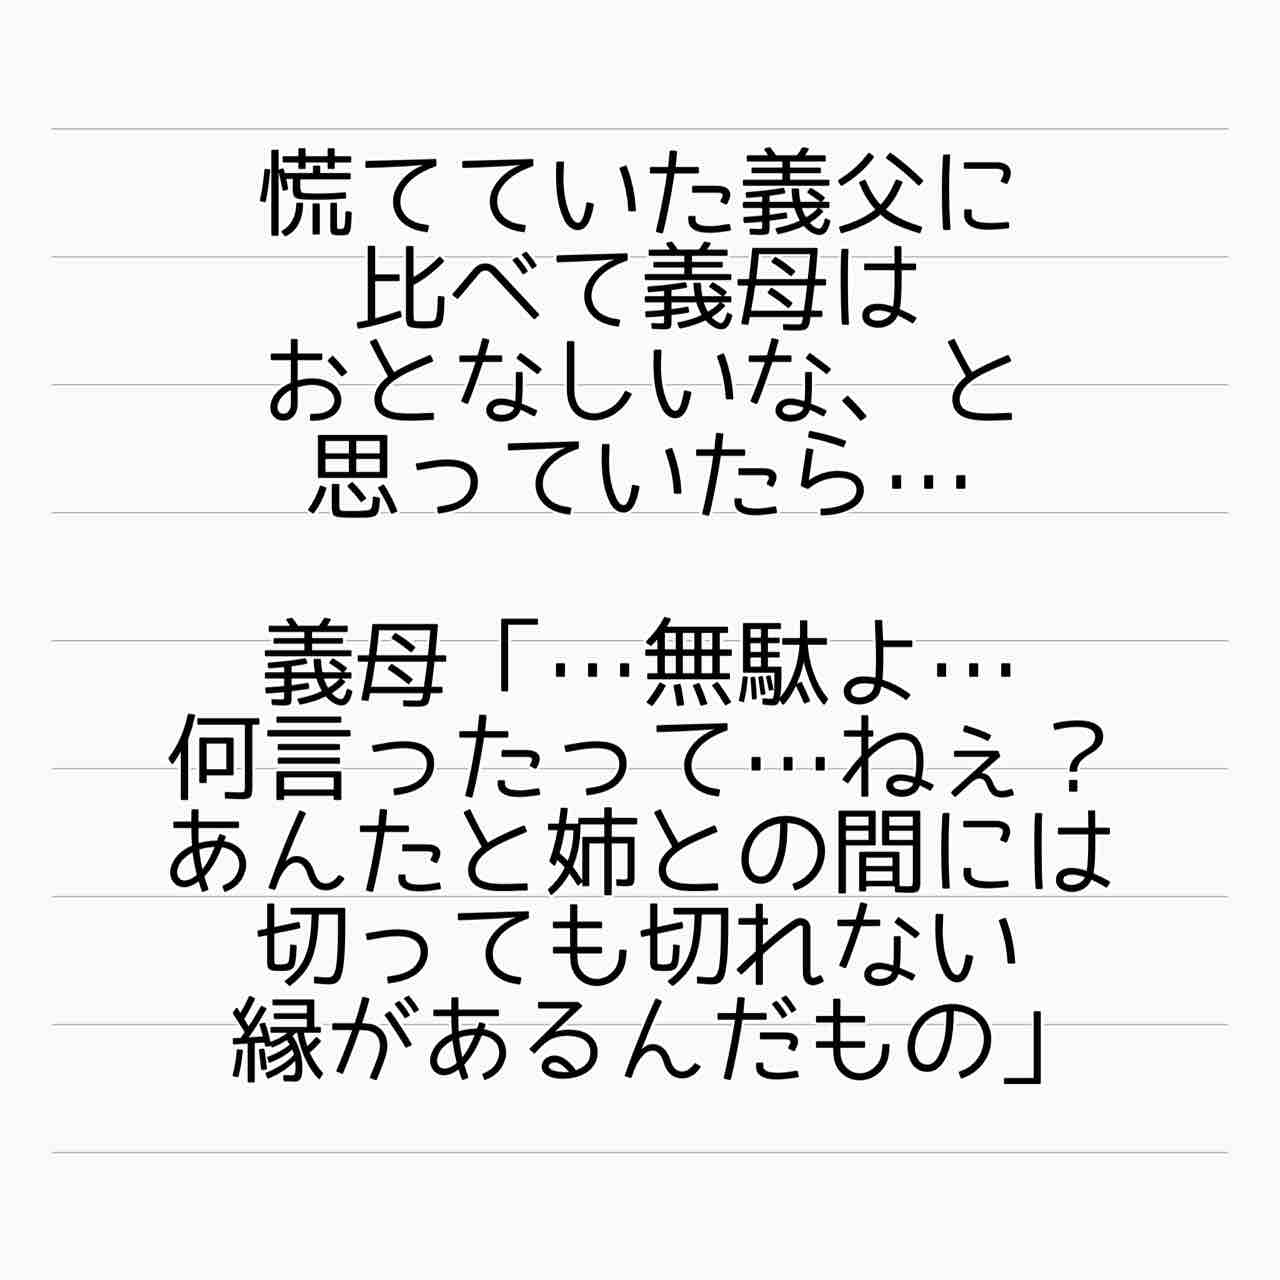 慌てていた義父に
比べて義母は
おとなしいな、と
思っていたら…
義母「…無駄よ…
何言ったって…ねぇ？
あんたと姉との間には
切っても切れない
縁があるんだもの」